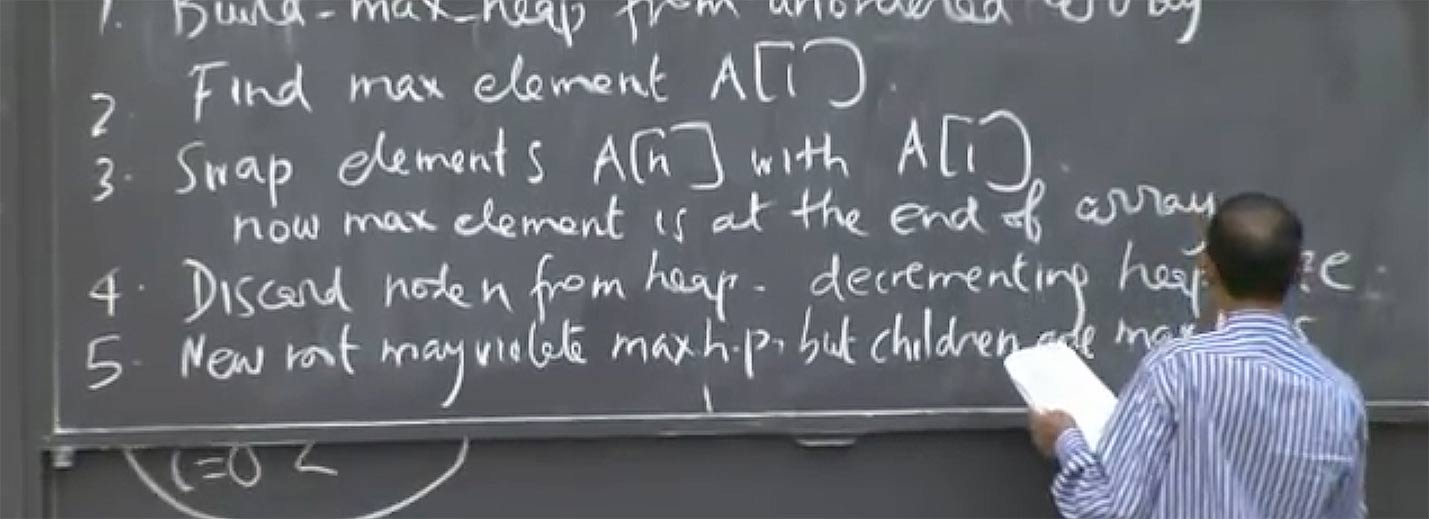 1. Build-max-heap from unordered array
2. Find max element A[1].
3. Swap elements A[n] with A[1].
now max element is at the end of array
4. Discard node n from heap - decrementing heap
5. New root may violate max h.p. but children are max